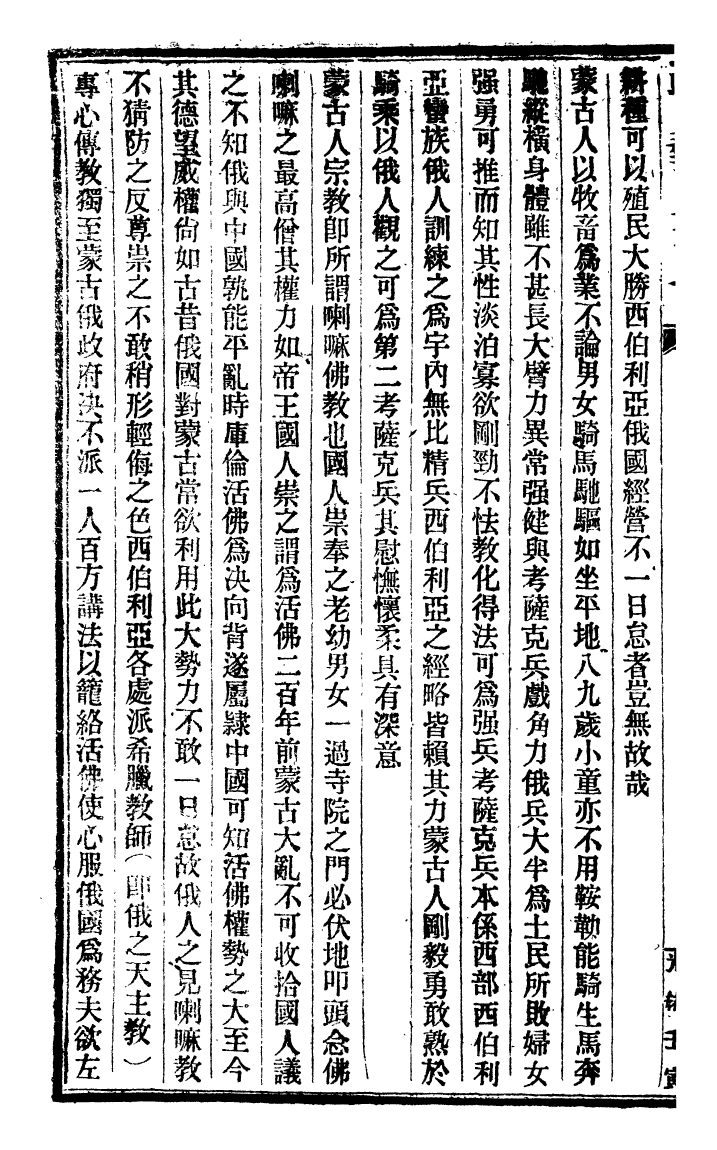 耕種可以殖民大勝西伯利亞俄國經營不一日怠者豈無故哉
蒙古人以牧畜爲業不論男女騎馬馳驅如坐平地八九歲小童亦不用鞍勒能騎生馬奔
馳縱橫身體雖不甚長大臂力異常强健與考薩克兵戲角力俄兵大半爲土民所敗婦女
强勇可推而知其性淡泊寡欲剛勁不怯教化得法可爲强兵考薩克兵本係西部西伯利
亞蠻族俄人訓練之爲宇內無比精兵西伯利亞之經略皆賴其力蒙古人剛毅勇敢熟於
騎乘以俄人觀之可爲第二考薩克兵其慰憮懷柔具有深意
蒙古人宗教卽所謂喇嘛佛教也國人崇奉之老幼男女一過寺院之門必伏地叩頭念佛
喇嘛之最高僧其權力如帝王國人崇之謂爲活佛二百年前蒙古大亂不可收拾國人議
之不知俄與中國孰能平亂時庫倫活佛爲决向背遂屬隸中國可知活佛權勢之大至今
其德望威權尙如古昔俄國對蒙古常欲利用此大勢力不敢一日怠故俄人之見喇嘛教
不猜防之反尊崇之不敢稍形輕侮之色西伯利亞各處派希臘教師(卽俄之天主教)
專心傳教獨至蒙古俄政府决不派一人百方講法以籠絡活佛使心服俄國爲務夫欲左
光緒壬寅